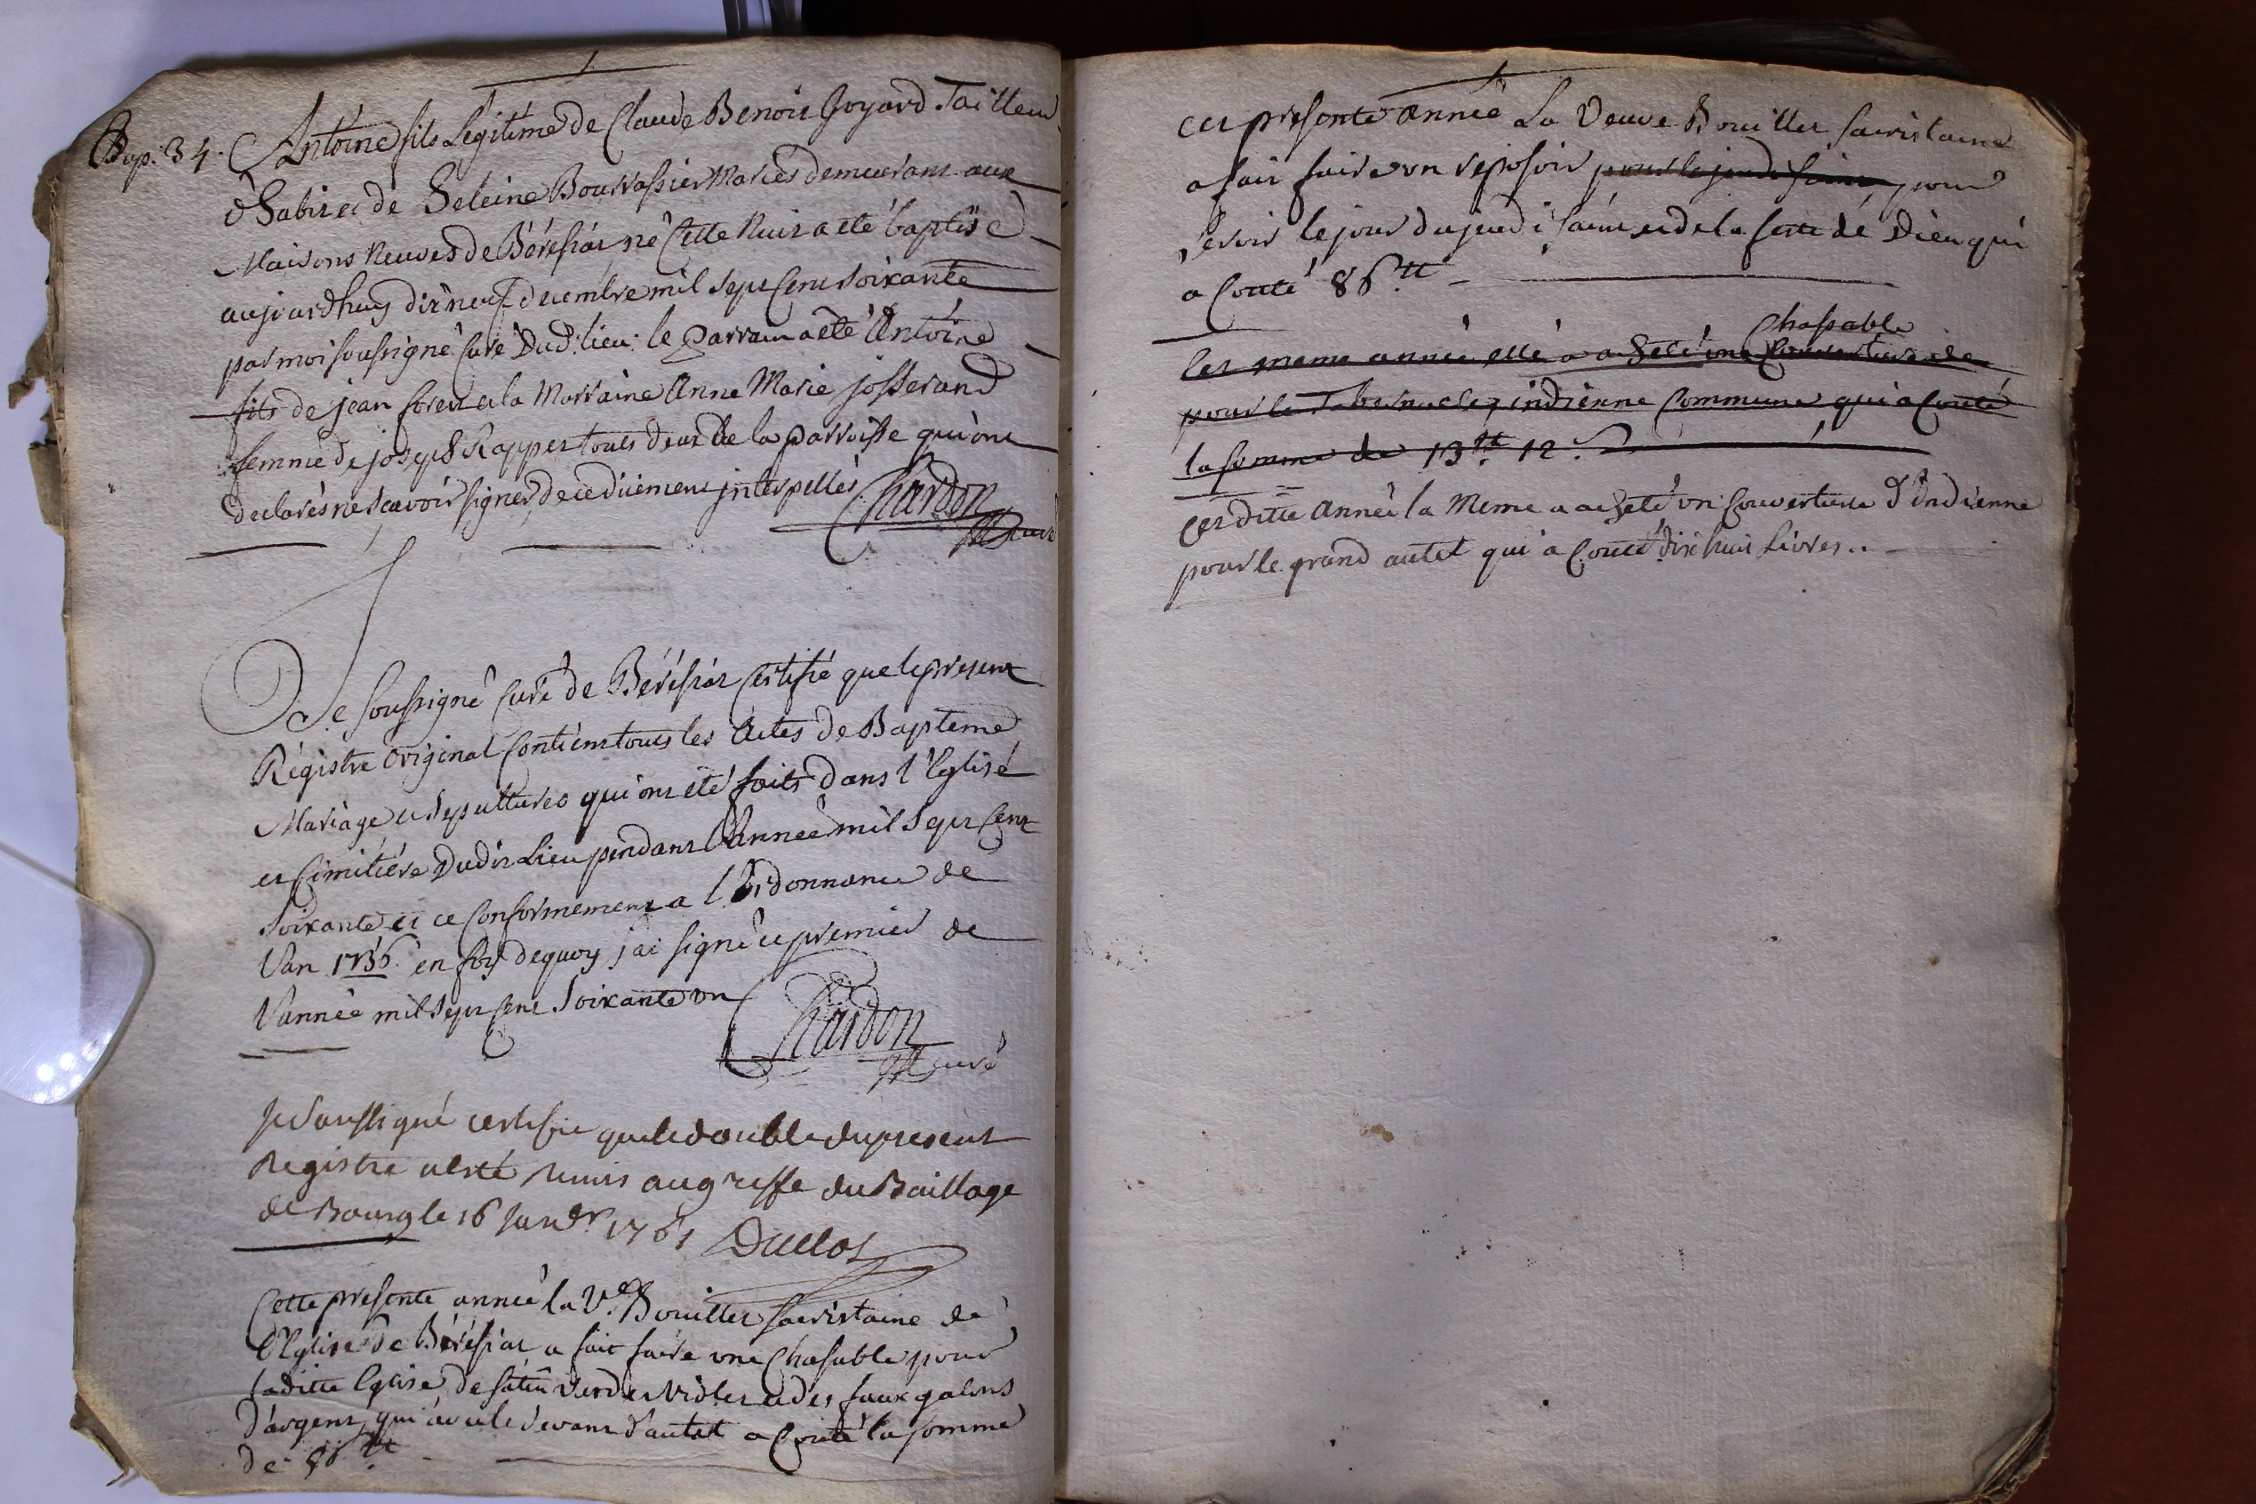 Bap: 34. Antoine fils Legitime de Claude Benoit Goyard Tailleur
d'habit et de heleine Bourrassier Mariés demeurant aux
Maisons Neuves de Béréfiat, né Cette Nuit a eté baptisé
aujourdhuy dixneuf decembre mil sept Cent soixante
par moi soussigné Curé Dud: lieu: le Parrain a eté Antoine
fils de jean foret et la Marraine Anne Marie josserand
femme de joseph Rapper tous deux de la parroisse qui ont
declarés ne scavoir signer de ce duement interpellés. Chardon
Curé
Je soussigné Curé de Béréfiat Certifié que le present
Régistre Original Contient tous les Actes de Bapteme
Mariage et sepultures qui ont eté faits dans l'Eglisé
et Cimitiére Dudit Lieu pendant l'Anneé mil sept Cent
soixante, et ce Conformement a l'Ordonnance de
l'an 1736. en foy de quoy j'ai signé ce premier de
l'anneé mil sept Cent soixante un
Chardon
Curé
Je Soussigné certifie que le double du present
Registre a esté remis au greffe du Baillage
de Bourg le 16 Janv.er 1761 Duclos
Cette presente anneé la V.e Bouiller sacristaine de
l'Eglise de Béréfiat a fait faire une Chasuble pour
ladite Eglise, de satin verd et violet et des faux galons
d'argent, qui avec le devant d'autel a Couté la somme
de
cet presente Anneé La Veuve Bouiller sacristaine
a fait faire un reposoir pour le jeudi saint pour
servir le jour du jeudi saint et de la fete de Dieu qui
a Couté 86.tt
Chasuble
cet meme anneé elle a acheté une Couverture de
pour le Tabernacle, indienne Commune qui a Couté
la somme de 13.tt 12.s
cet ditte Anneé la Meme a acheté un Couverture d'indienne
pour le grand autel qui a Couté dix huit Livres..